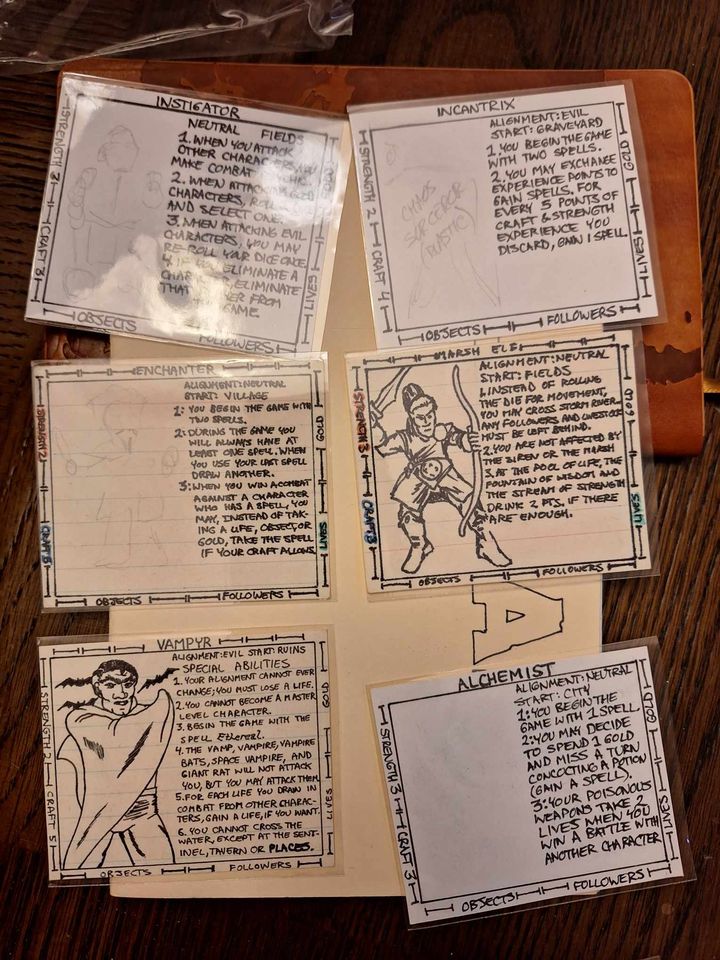 INSTIGATOR
NEUTRAL FIELDS
1. WHEN YOU ATTACK
OTHER CHARACTERS, YOU
MAKE COMBAT
2. WHEN ATTACKING GOOD
CHARACTERS, ROLL
AND SELECT ONE.
3. WHEN ATTACKING EVIL
CHARACTERS, YOU MAY
RE-ROLL YOUR DICE ONCE
4. IF YOU ELIMINATE A
CHARACTER, ELIMINATE
THAT FROM
GAME.
STRENGTH 3
CRAFT 3
GOLD
LIVES
OBJECTS
FOLLOWERS
INCANTRIX
ALIGNMENT: EVIL
START: GRAVEYARD
1. YOU BEGIN THE GAME
WITH TWO SPELLS.
2. YOU MAY EXCHANGE
EXPERIENCE POINTS TO
GAIN SPELLS. FOR
EVERY 5 POINTS OF
CRAFT & STRENGTH
EXPERIENCE YOU
DISCARD, GAIN 1 SPELL
CHAOS
SORCEROR
PLASTIC
STRENGTH 2
CRAFT 4
GOLD
LIVES
OBJECTS
FOLLOWERS
ENCHANTER
ALIGNMENT: NEUTRAL
START: VILLAGE
1: YOU BEGIN THE GAME WITH
TWO SPELLS.
2: DURING THE GAME YOU
WILL ALWAYS HAVE AT
LEAST ONE SPELL. WHEN
YOU USE YOUR LAST SPELL
DRAW ANOTHER.
3: WHEN YOU WIN A COMBAT
AGAINST A CHARACTER
WHO HAS A SPELL, YOU
MAY, INSTEAD OF TAK-
ING A LIFE, OBJECT, OR
GOLD, TAKE THE SPELL
IF YOUR CRAFT ALLOWS.
STRENGTH 2
CRAFT 3
GOLD
LIVES
OBJECTS
FOLLOWERS
MARSH ELF
ALIGNMENT: NEUTRAL
START: FIELDS
1. INSTEAD OF ROLLING
THE DIE FOR MOVEMENT,
YOU MAY CROSS STORM RIVER
ANY FOLLOWERS AND LIVESTOCK
MUST BE LEFT BEHIND.
2. YOU ARE NOT AFFECTED BY
THE SIREN OR THE MARSH
3. AT THE POOL OF LIFE, THE
FOUNTAIN OF WISDOM, AND
THE STREAM OF STRENGTH
DRINK 2 PTS, IF THERE
ARE ENOUGH.
STRENGTH 3
CRAFT 3
GOLD
LIVES
OBJECTS
FOLLOWERS
A
VAMPYR
ALIGNMENT: EVIL START: RUINS
SPECIAL ABILITIES
1. YOUR ALIGNMENT CANNOT EVER
CHANGE; YOU MUST LOSE A LIFE.
2. YOU CANNOT BECOME A MASTER
LEVEL CHARACTER.
3. BEGIN THE GAME WITH THE
SPELL Ethereal.
4. THE VAMP, VAMPIRE, VAMPIRE
BATS, SPACE VAMPIRE, AND
GIANT RAT WILL NOT ATTACK
YOU, BUT YOU MAY ATTACK THEM.
5. FOR EACH LIFE YOU DRAW IN
COMBAT FROM OTHER CHARAC-
TERS, GAIN A LIFE, IF YOU WANT.
6. YOU CANNOT CROSS THE
WATER, EXCEPT AT THE SENT-
INEL, TAVERN OR PLACES.
STRENGTH 2
CRAFT 5
GOLD
LIVES
OBJECTS
FOLLOWERS
ALCHEMIST
ALIGNMENT: NEUTRAL
START: CITY
1: YOU BEGIN THE
GAME WITH 1 SPELL.
2: YOU MAY DECIDE
TO SPEND 1 GOLD
AND MISS A TURN
CONCOCTING A POTION
(GAIN A SPELL).
3: YOUR POISONOUS
WEAPONS TAKE 2
LIVES WHEN YOU
WIN A BATTLE WITH
ANOTHER CHARACTER
STRENGTH 3
CRAFT 3
GOLD
LIVES
OBJECTS
FOLLOWERS